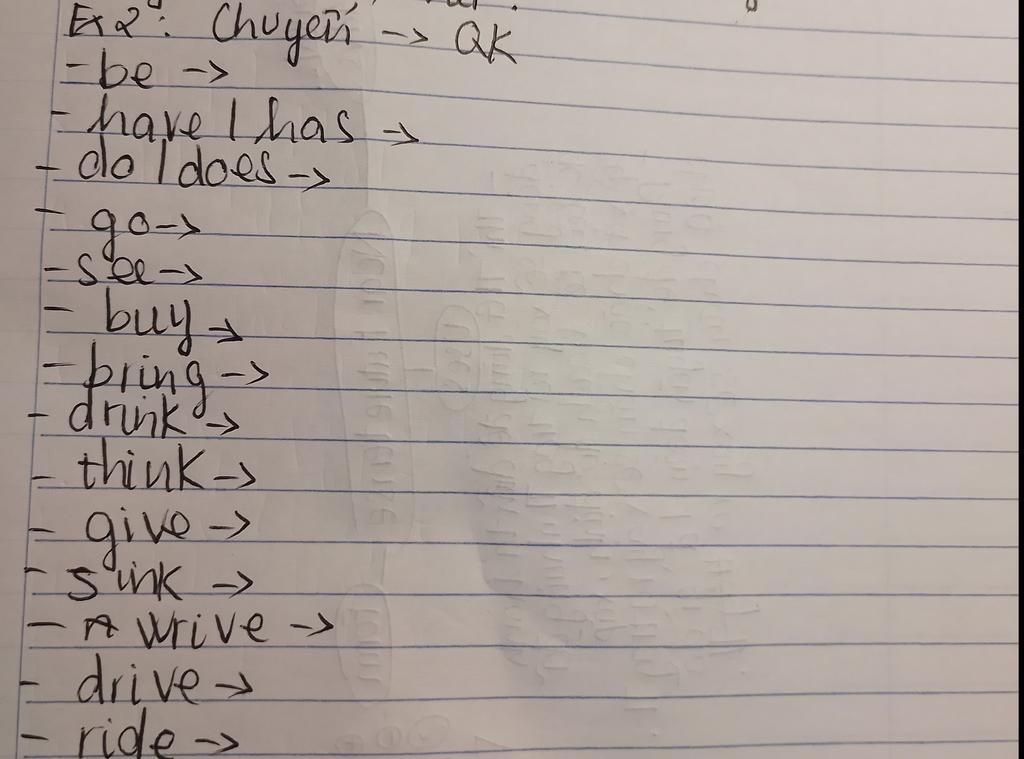 Ex2: Chuyển -> QK
- be ->
- have / has ->
- do / does ->
- go ->
- see ->
- buy ->
- bring ->
- drink ->
- think ->
- give ->
- sink ->
- wrive ->
- drive ->
- ride ->